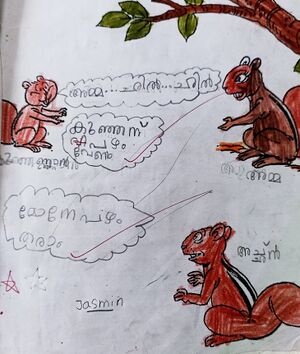 അമ്മ....ഛിൽ...ഛിൽ
കുഞ്ഞന്
പഴം
വേണം
അമ്മ
മോനേ പഴം
തരാം
അച്ഛൻ
Jasmin